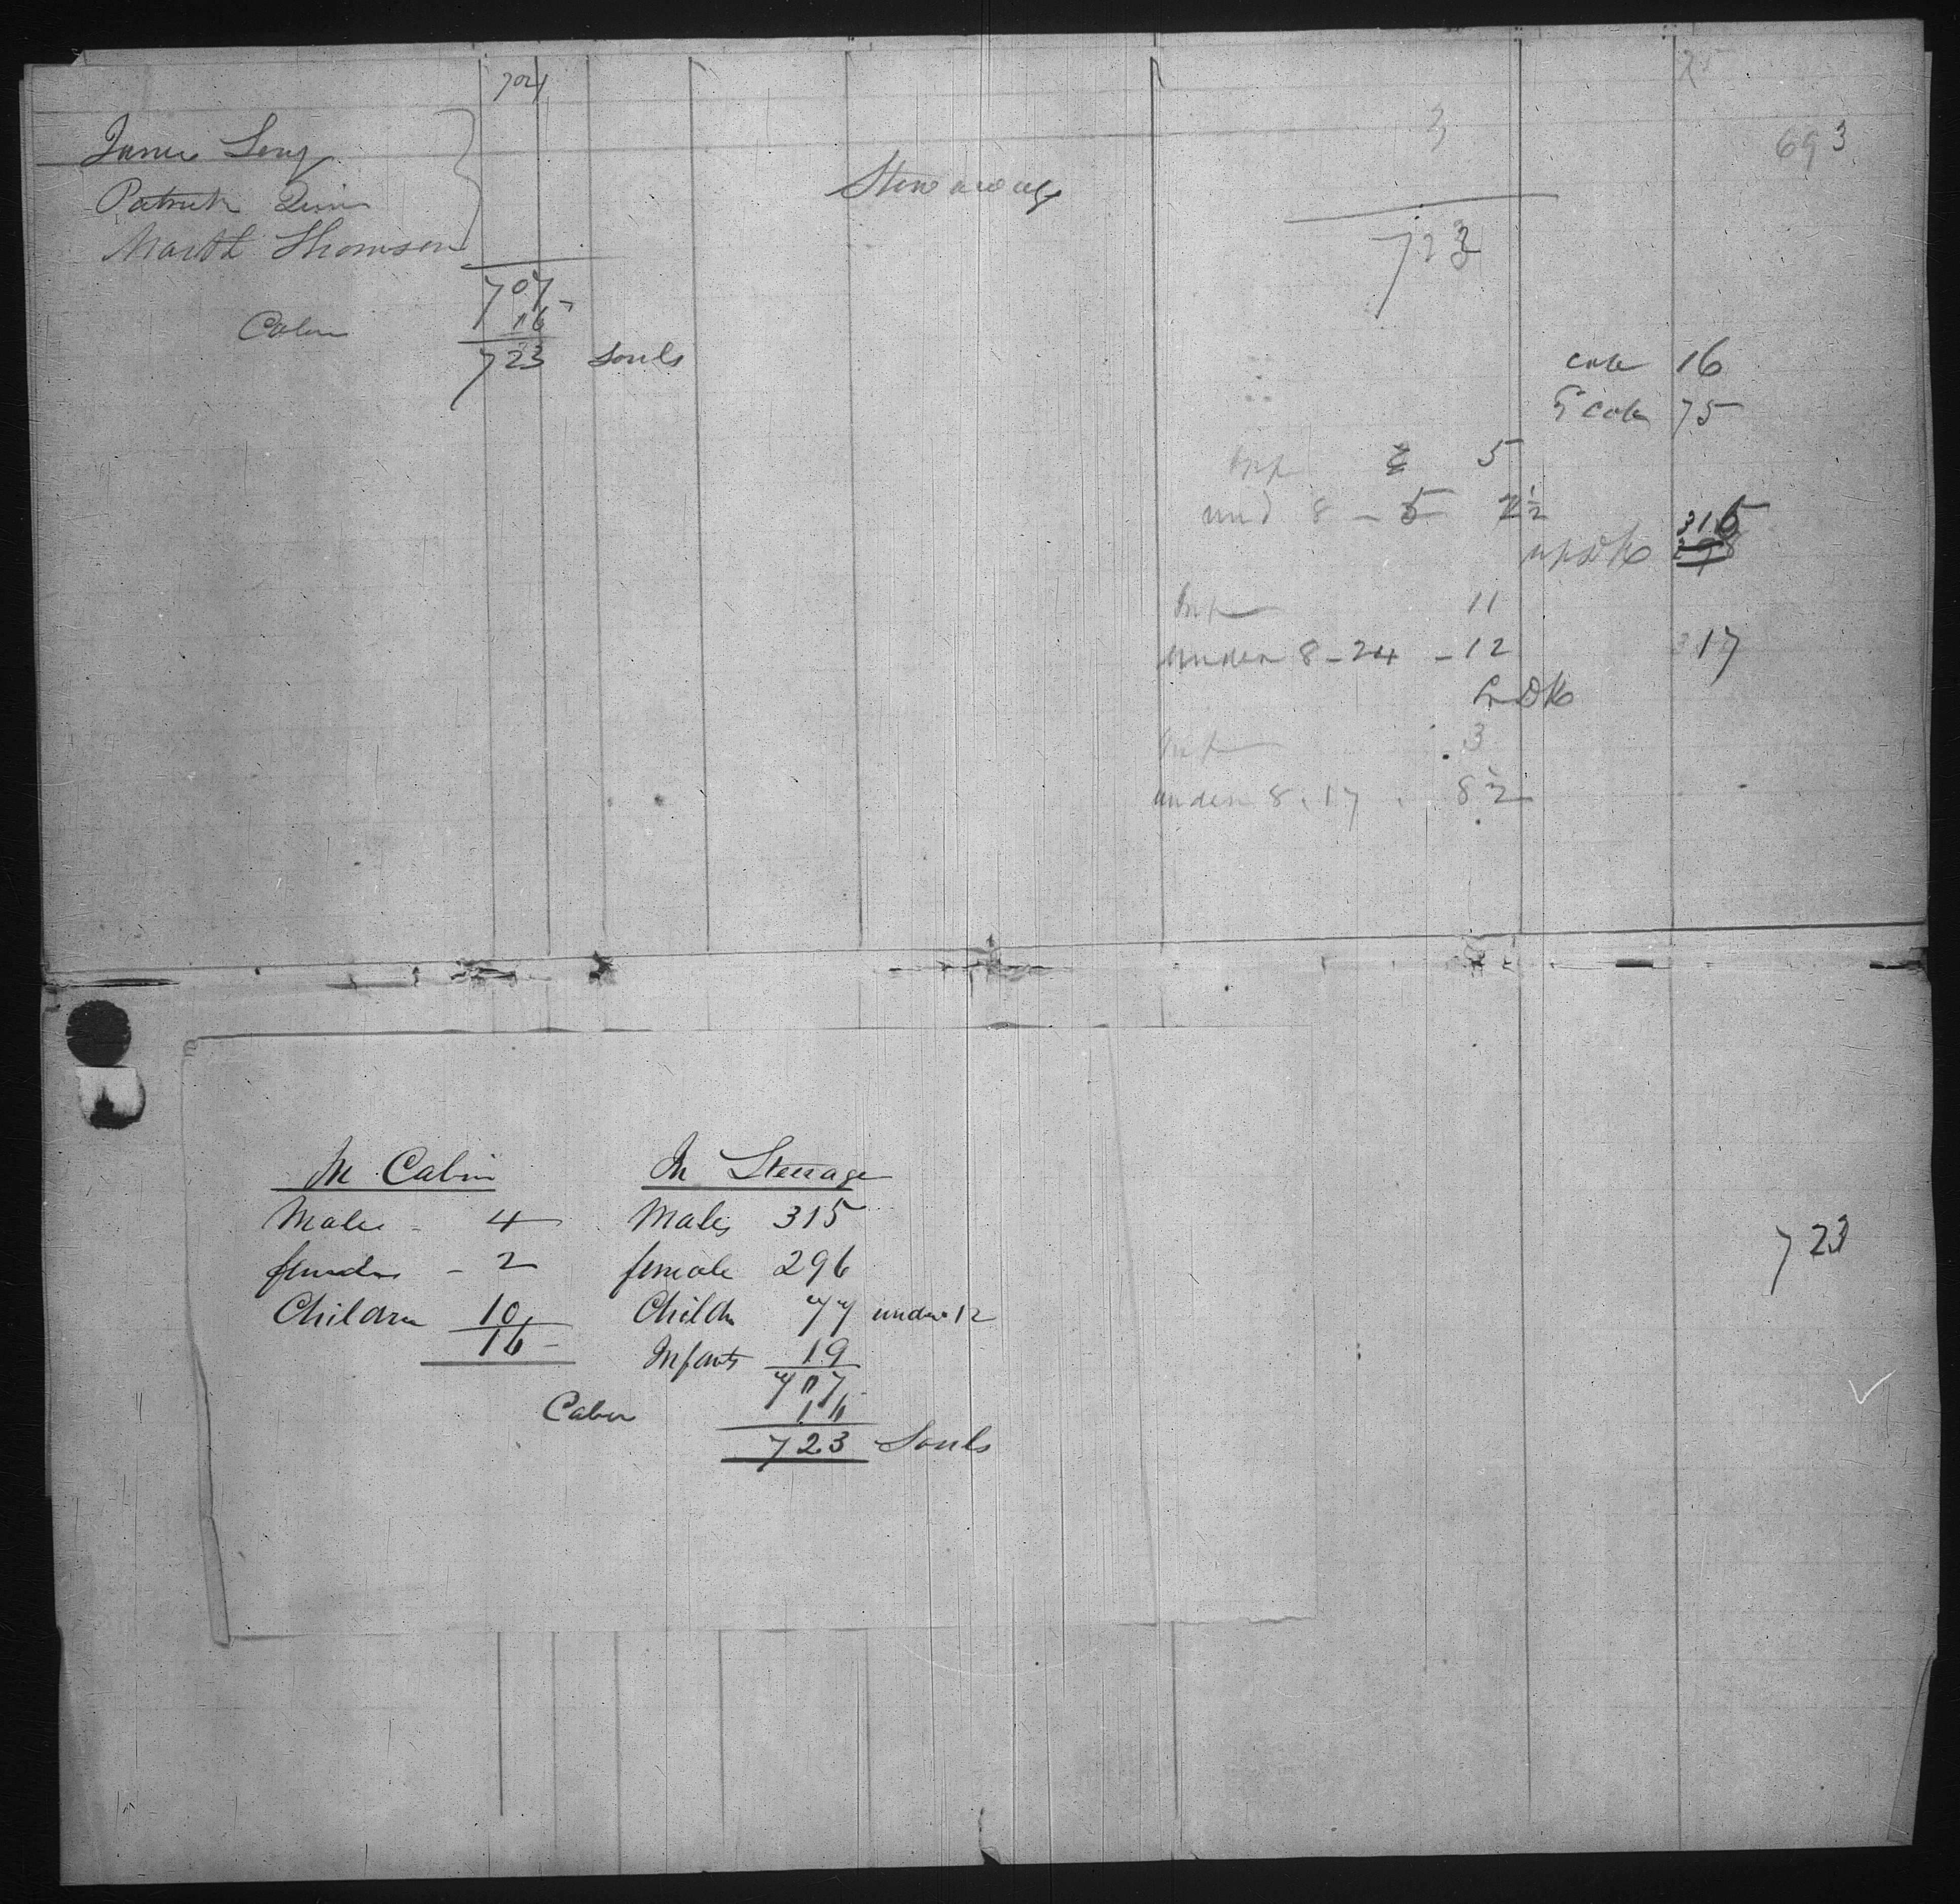 704
James Long
Patrick Quinn
Thomson
Stowaways
707
Cabin 16
723 Souls
3
723
693
cab 16
75
Inf 5
und 8 - 5 2½
up DK 316
Inf 11
under 8 - 24 - 12
317
L DK
Inf 3
under 8 . 17 . 8½
In Cabin
Males - 4
females - 2
Children 10
16
In Steerage
Males 315
female 296
Childn 77 under 12
Infants 19
707
Cabin 16
723 Souls
723